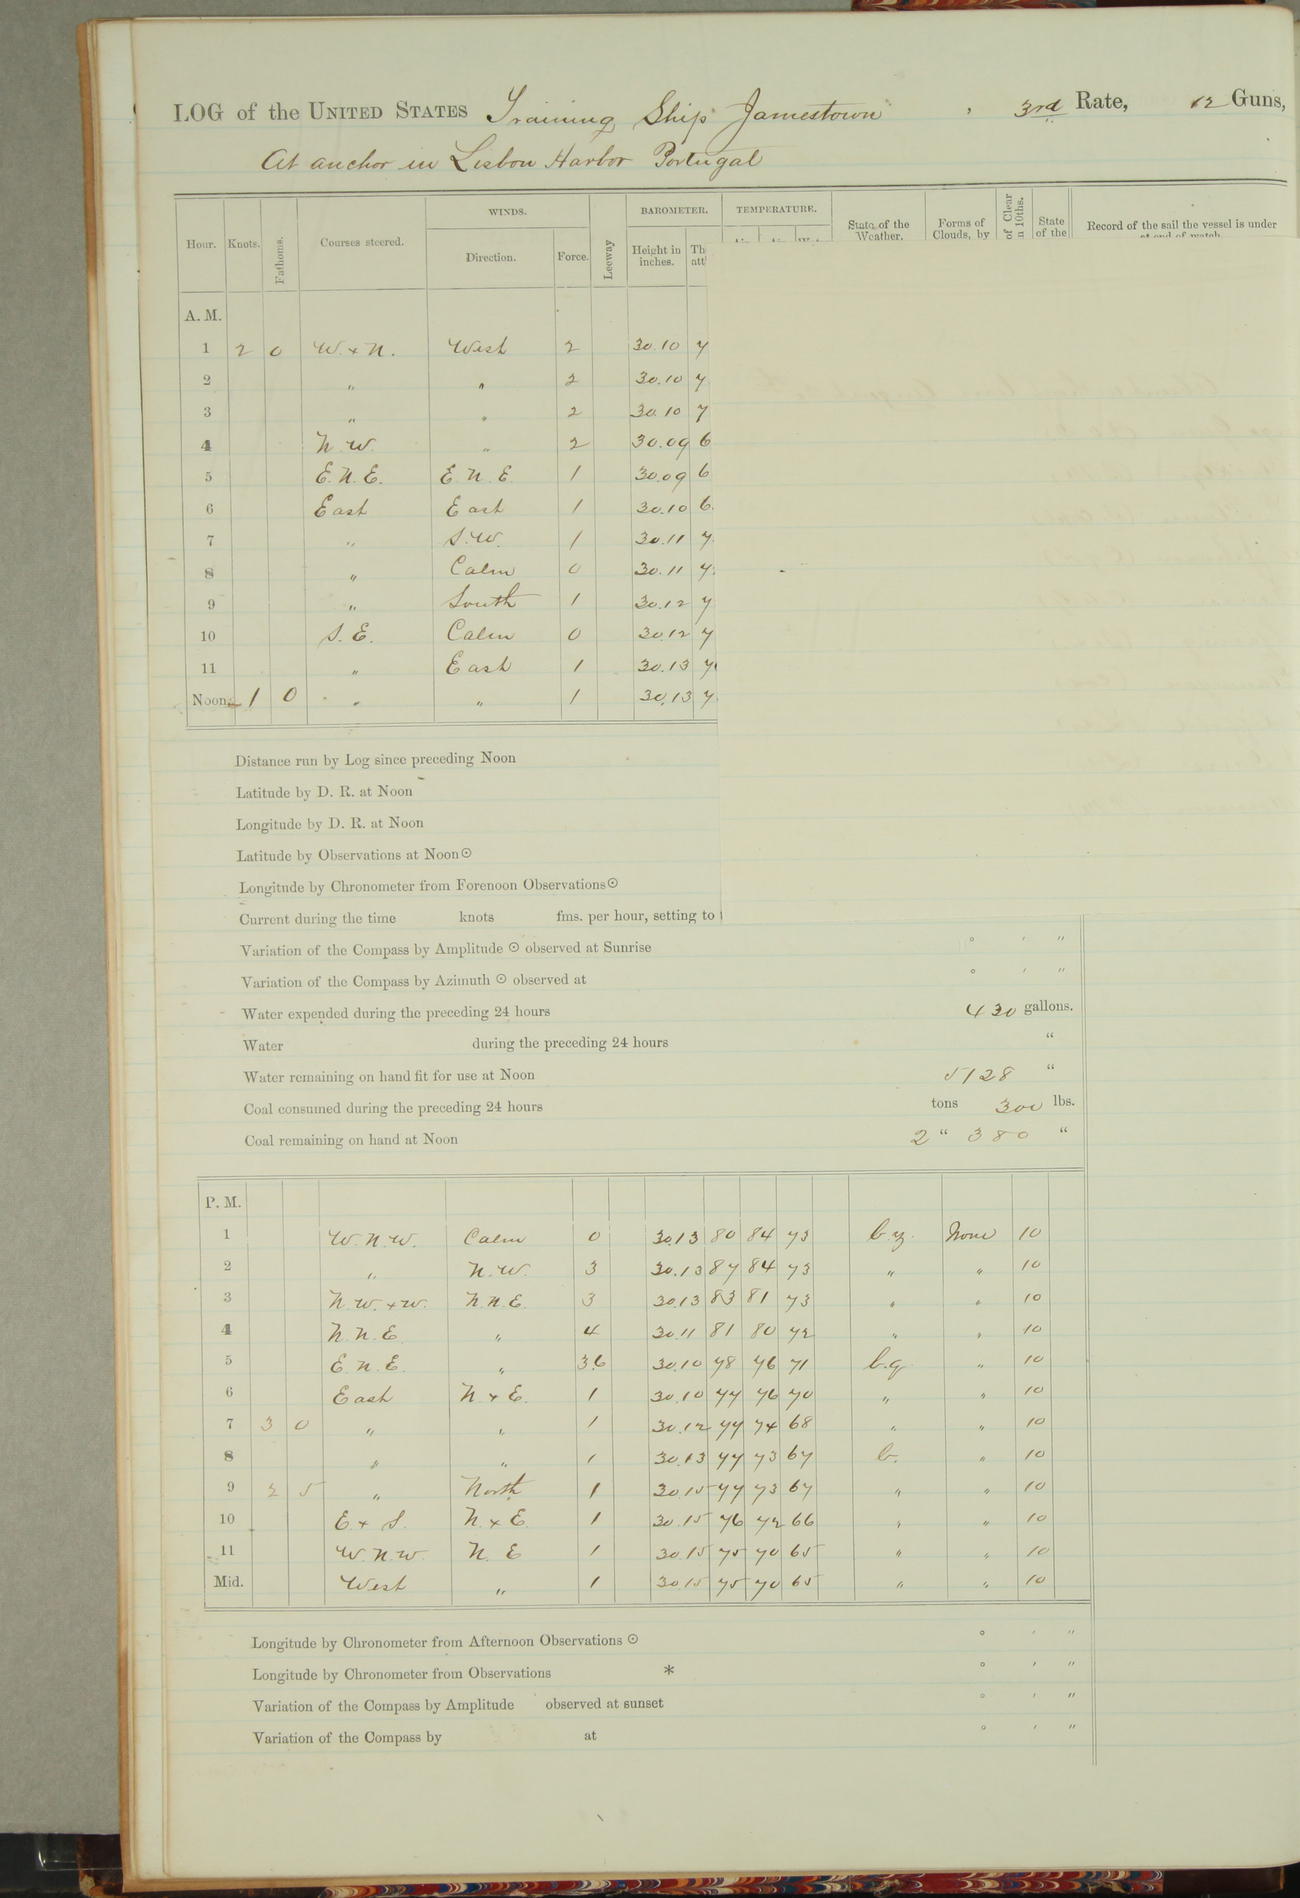 LOG of the UNITED STATES Training Ship Jamestown, 3rd Rate, 12 Guns,
At anchor in Lisbon Harbor Portugal
WINDS. BAROMETER. TEMPERATURE.
Hour. Knots. Fathoms. Courses steered. Direction. Force. Leeway Height in inches. State of the Weather. Forms of Clouds, by of Clear State of the Record of the sail the vessel is under
A. M.
1 2 0 W. x N. West 2 30.10 7
2 " " 2 30.10 7
3 " " 2 30.10 7
4 N. W. " 2 30.09 6
5 E. N. E. E. N. E. 1 30.09 6
6 East East 1 30.10 6
7 " S. W. 1 30.11 7
8 " Calm 0 30.11 7
9 " South 1 30.12 7
10 S. E. Calm 0 30.12 7
11 " East 1 30.13 7
Noon, 1 0 " " 1 30.13 7
Distance run by Log since preceding Noon
Latitude by D. R. at Noon
Longitude by D. R. at Noon
Latitude by Observations at Noon ☉
Longitude by Chronometer from Forenoon Observations ☉
Current during the time knots fms. per hour, setting to
Variation of the Compass by Amplitude ☉ observed at Sunrise ° ′ ″
Variation of the Compass by Azimuth ☉ observed at ° ′ ″
Water expended during the preceding 24 hours 430 gallons.
Water during the preceding 24 hours "
Water remaining on hand fit for use at Noon 5128 "
Coal consumed during the preceding 24 hours tons 300 lbs.
Coal remaining on hand at Noon 2 " 380 "
P. M.
1 W. N. W. Calm 0 30.13 80 84 73 b. z. None 10
2 " N. W. 3 30.13 87 84 73 " " 10
3 N. W. x W. N. N. E. 3 30.13 83 81 73 " " 10
4 N. N. E. " 4 30.11 81 80 72 " " 10
5 E. N. E. " 3.6 30.10 78 76 71 b. q. " 10
6 East N. x E. 1 30.10 77 76 70 " " 10
7 3 0 " " 1 30.12 77 74 68 " " 10
8 " " 1 30.13 77 73 67 b. " 10
9 2 5 " North 1 30.15 77 73 67 " " 10
10 E. x S. N. x E. 1 30.15 76 72 66 " " 10
11 W. N. W. N. E 1 30.15 75 70 65 " " 10
Mid. West " 1 30.15 75 70 65 " " 10
Longitude by Chronometer from Afternoon Observations ☉ ° ′ ″
Longitude by Chronometer from Observations * ° ′ ″
Variation of the Compass by Amplitude observed at sunset ° ′ ″
Variation of the Compass by at ° ′ ″